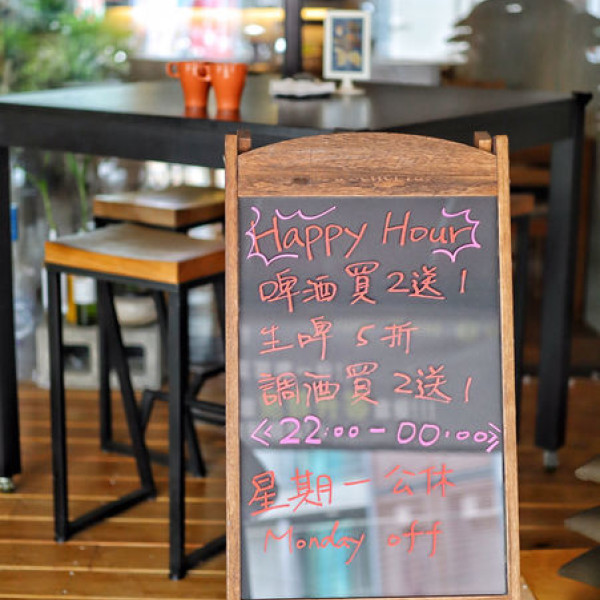 Happy Hour
啤酒買2送1
生啤5折
調酒買2送1
《22:00-00:00》
星期一公休
Monday off